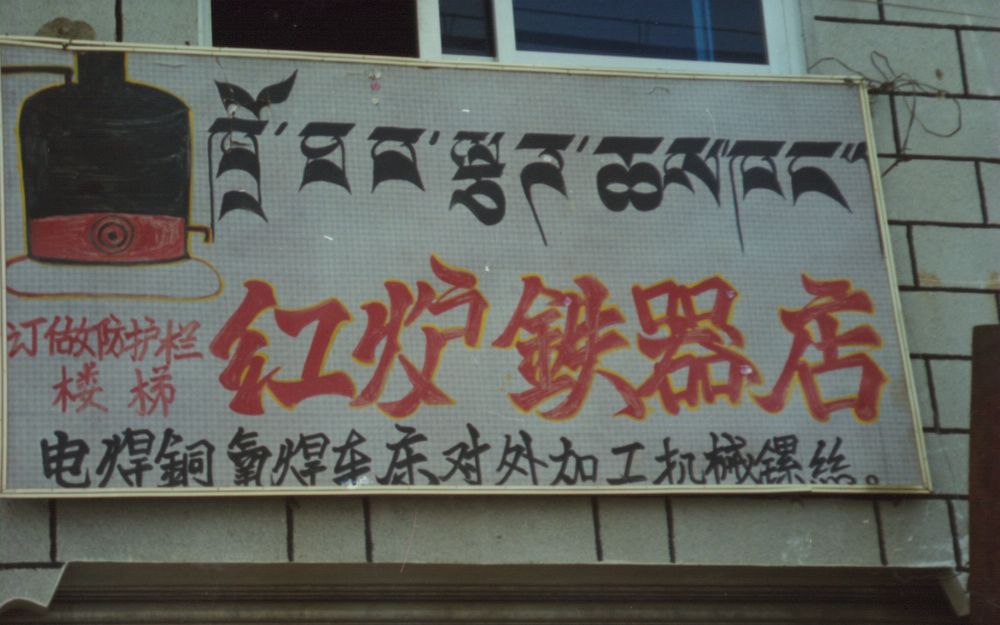 红炉鉄器店
订做防护栏
楼梯
电焊銅氧焊车床对外加工机械镙絲。